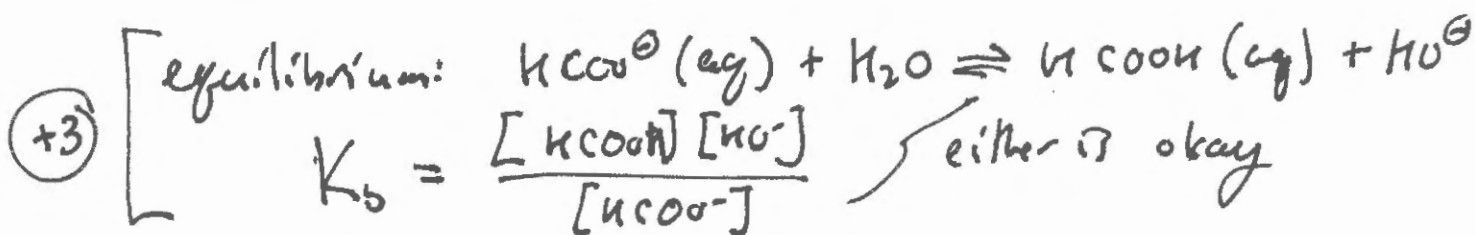 equilibrium: HCOO⊖ (aq) + H₂O ⇌ HCOOH (aq) + HO⊖
+3 K_b = [HCOOH] [HO⁻] / [HCOO⁻] either is okay